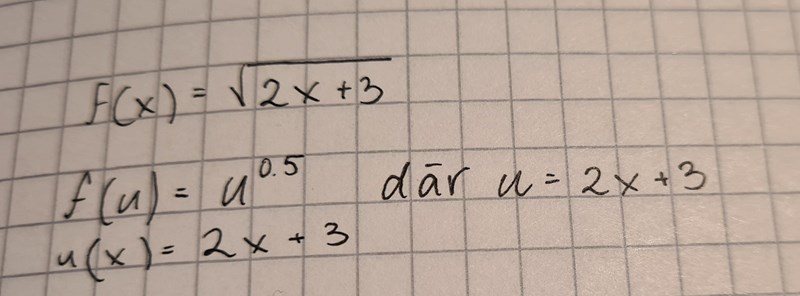 f(x) = √2x+3
f(u) = u^0.5 där u = 2x+3
u(x) = 2x + 3